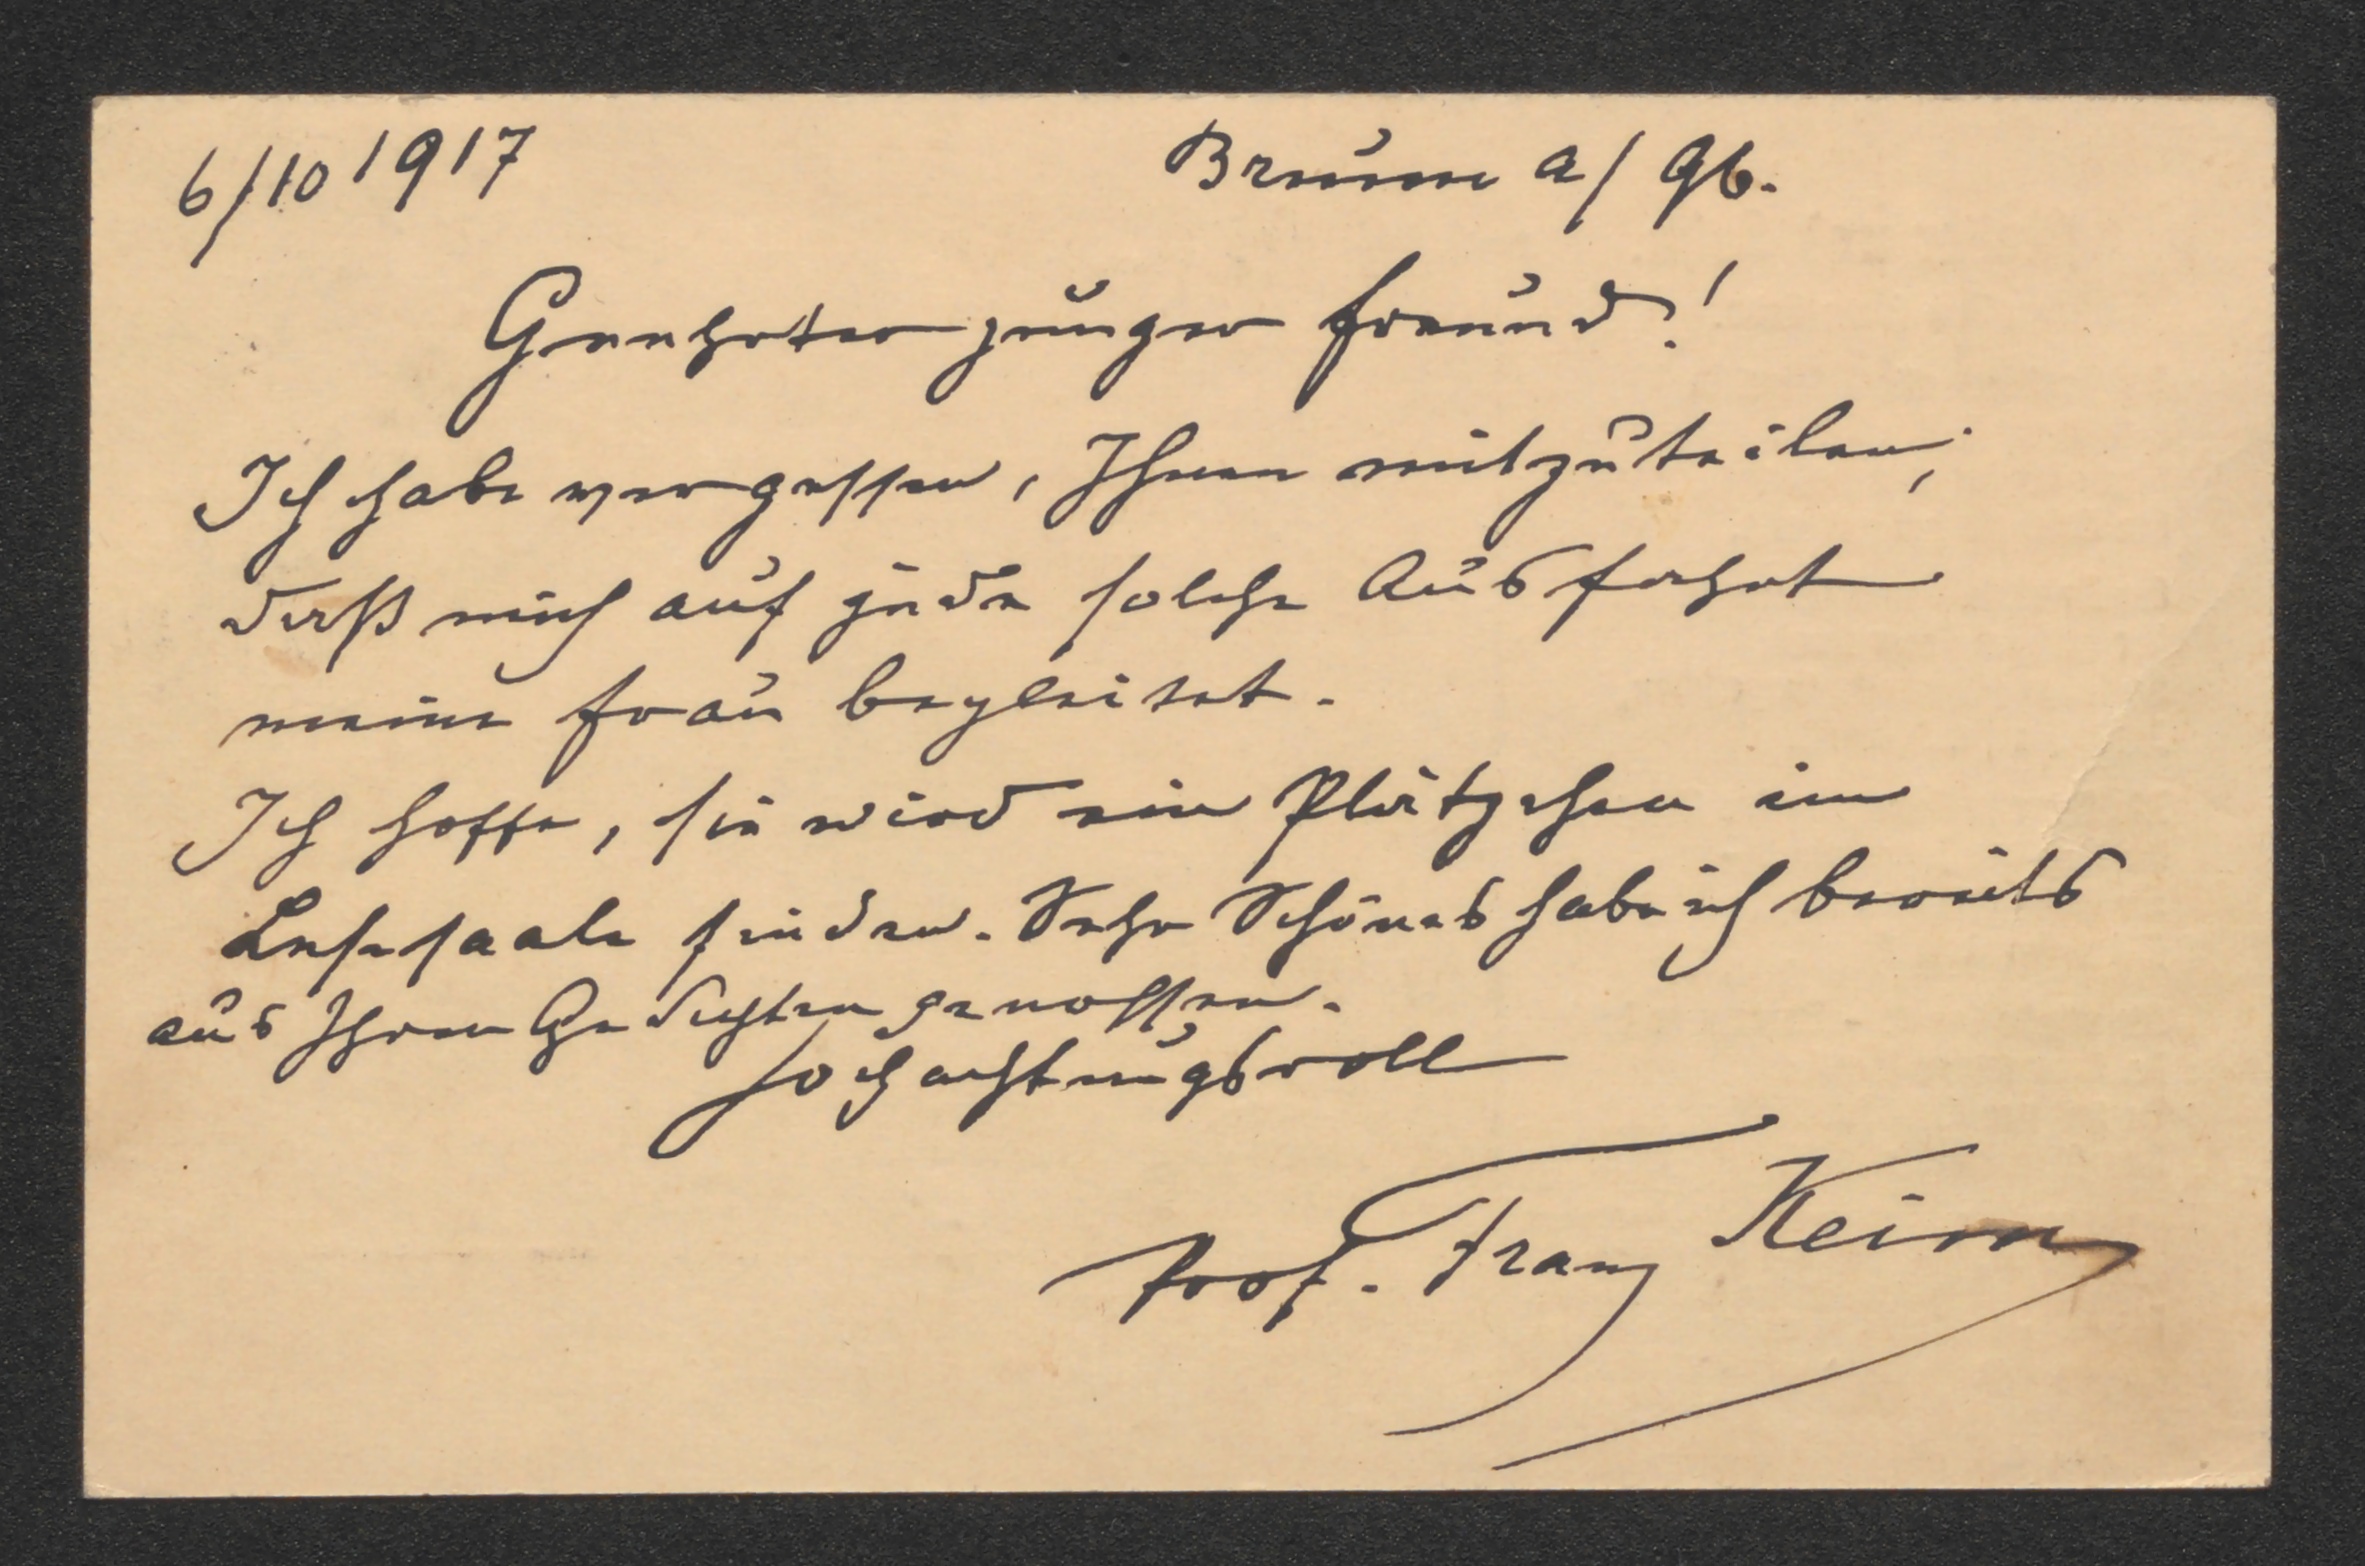 6/10 1917 Brunn a/ Gb.
Geehrter junger Freund!
Ich habe vergessen, Ihnen mitzuteilen,
daß mich auf jede solche Ausfahrt
meine Frau begleitet.
Ich hoffe, sie wird ein Plätzchen im
Lesesaale finden. Sehr Schönes habe ich bereits
aus Ihren Gedichten genossen.
Hochachtungsvoll
Prof. Franz Keim